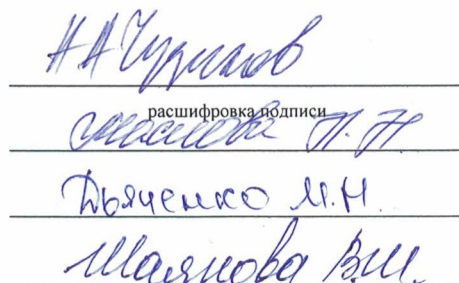 НАЧуриков
расшифровка подписи
Н.Н.
Дьяченко М.Н.
Шаянова В.Ш.